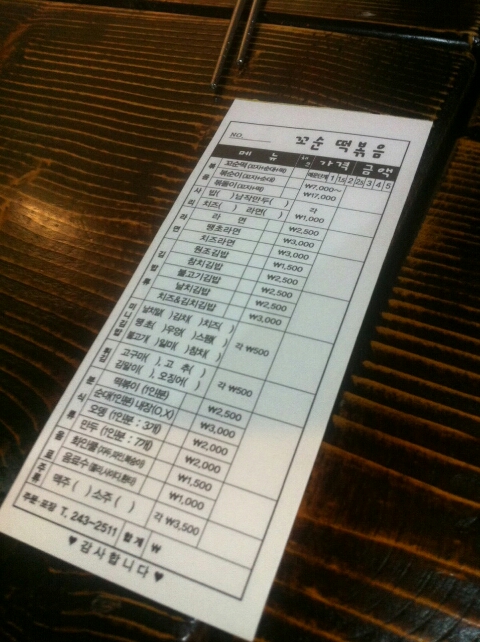 NO.
꼬순 떡볶음
메 뉴 가격 금액
볶음 꼬순떡 매운단계 1 1s 2 2s 3 4 5
볶순이 ₩7,000~
볶돌이 ₩17,000
사리 밥( ) 납작만두( ) 각
치즈( ) 라면( ) ₩1,000
라면 라 면 ₩2,500
땡초라면 ₩3,000
치즈라면 ₩3,000
김밥류 원조김밥 ₩1,500
참치김밥 ₩2,500
불고기김밥 ₩2,500
날치김밥 ₩2,500
치즈&김치김밥 ₩3,000
미니김밥 날치알( )김치( )치즈( )
땡초( )우엉( )스팸( ) 각 ₩500
불고기( )멸치( )참치( )
튀김 고구마( ), 고 추( )
김말이( ), 오징어( ) 각 ₩500
분식류 떡볶이 (1인분) ₩2,500
순대(1인분) 내장(O,X) ₩3,000
오뎅 (1인분 : 3개) ₩2,000
만두 (1인분 : 7개) ₩2,000
음료 ₩1,500
음료수 ₩1,000
주류 맥주 ( ) 소주 ( ) 각 ₩3,500
주문·포장 T. 243-2511 합계 ₩
♥ 감사합니다 ♥